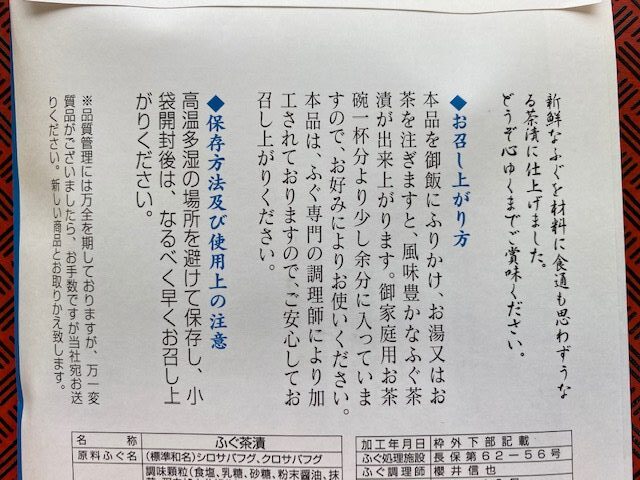 新鮮なふぐを材料に食通も思わずうな
る茶漬に仕上げました。
どうぞ心ゆくまでご賞味ください。
◆お召し上がり方
本品を御飯にふりかけ、お湯又はお
茶を注ぎますと、風味豊かなふぐ茶
漬が出来上がります。御家庭用お茶
碗一杯分より少し余分に入っていま
すので、お好みによりお使いください。
本品は、ふぐ専門の調理師により加
工されておりますので、ご安心してお
召し上がりください。
◆保存方法及び使用上の注意
高温多湿の場所を避けて保存し、小
袋開封後は、なるべく早くお召し上
がりください。
※品質管理には万全を期しておりますが、万一変
質品がございましたら、お手数ですが当社宛お送
りください。新しい商品とお取りかえ致します。
名称 ふぐ茶漬
原料ふぐ名 (標準和名)シロサバフグ、クロサバフグ
調味顆粒(食塩、乳糖、砂糖、粉末醤油、抹
加工年月日 枠外下部記載
ふぐ処理施設 長保第62-56号
ふぐ調理師 櫻井信也